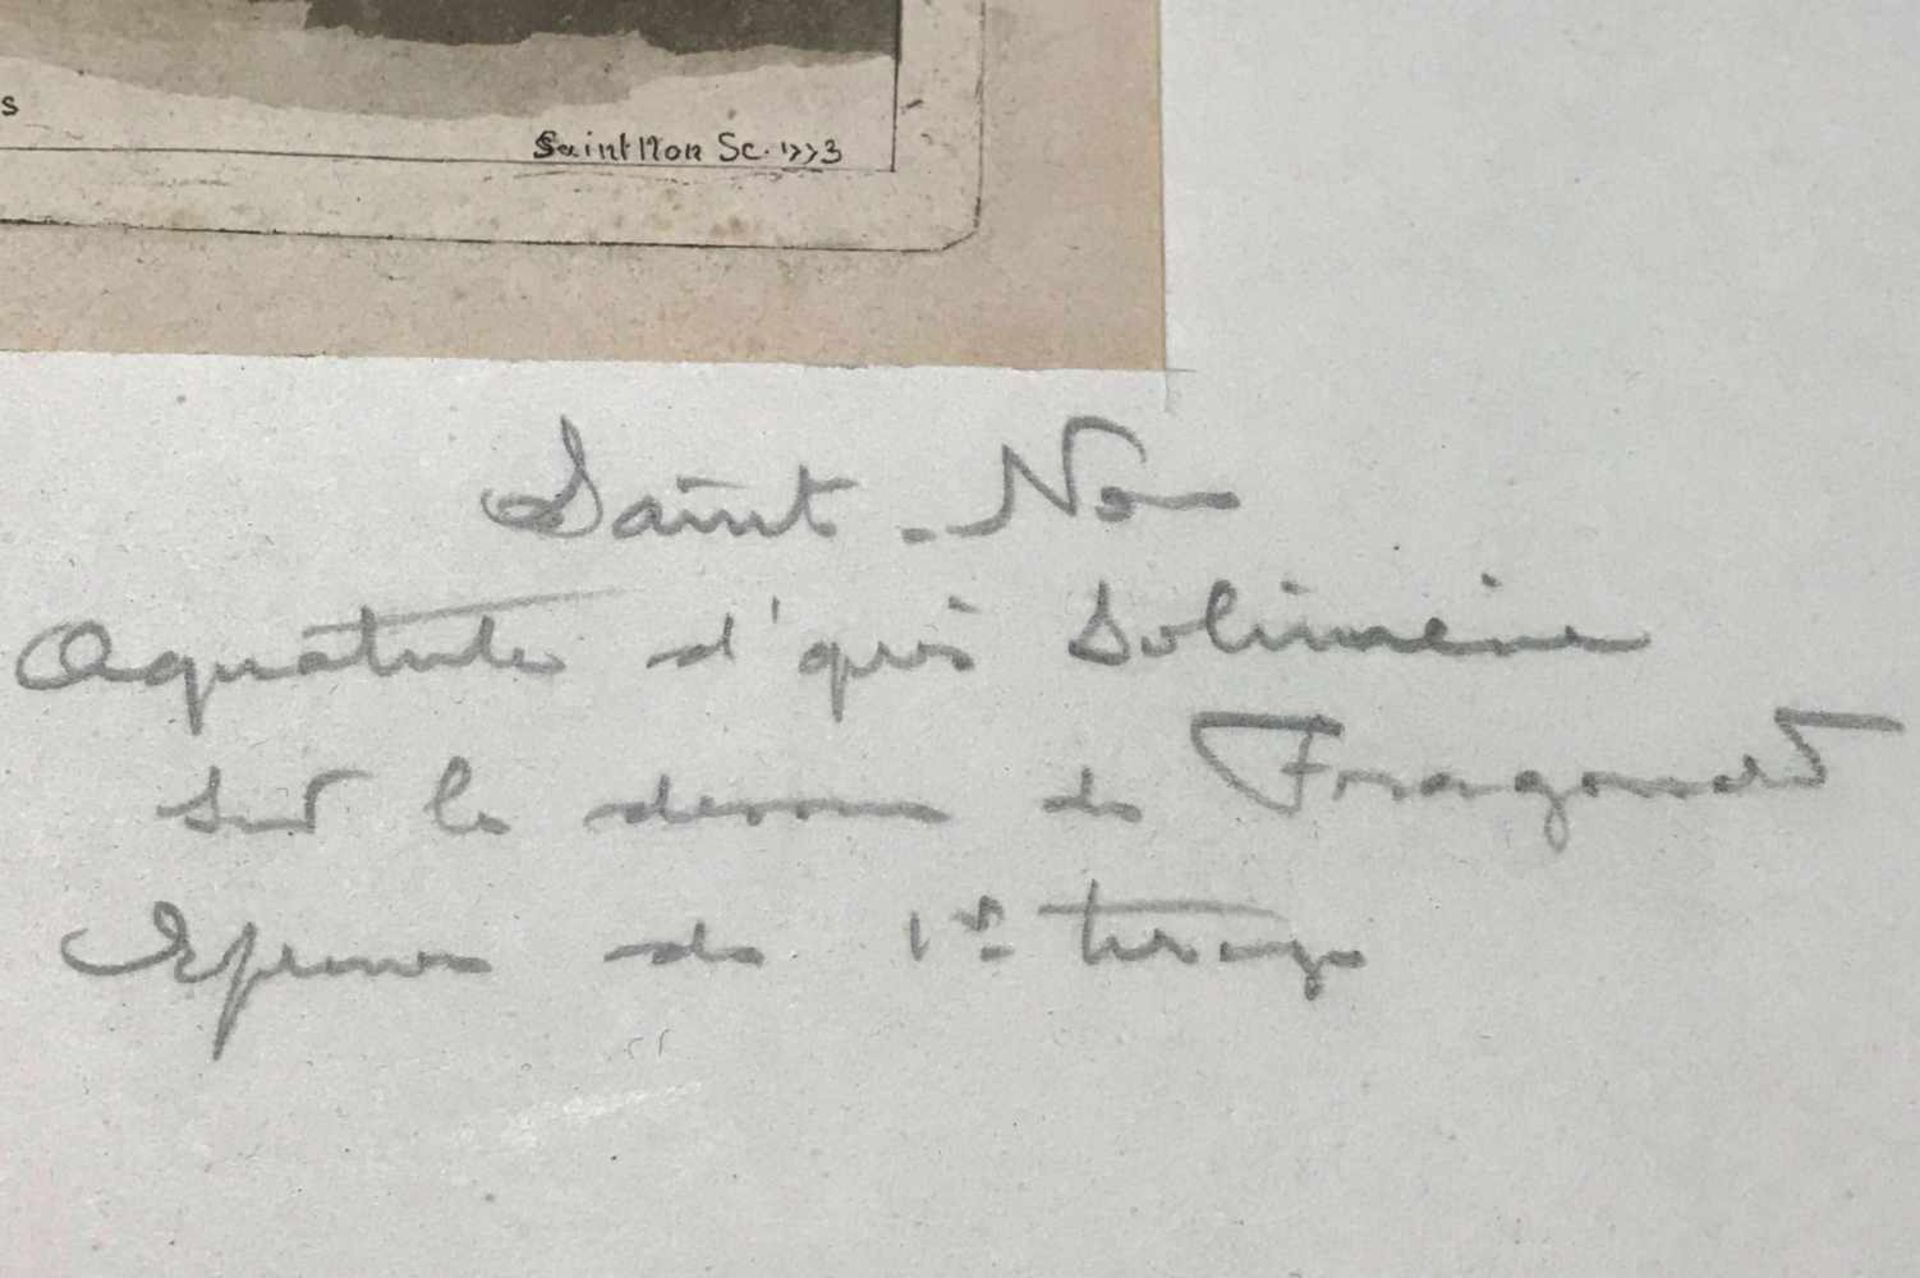 s
Saint Non Sc. 1773
Saint-Non
Aquatinte d'après Solimène
sur le dessin de Fragonard
Epreuve de 1er tirage